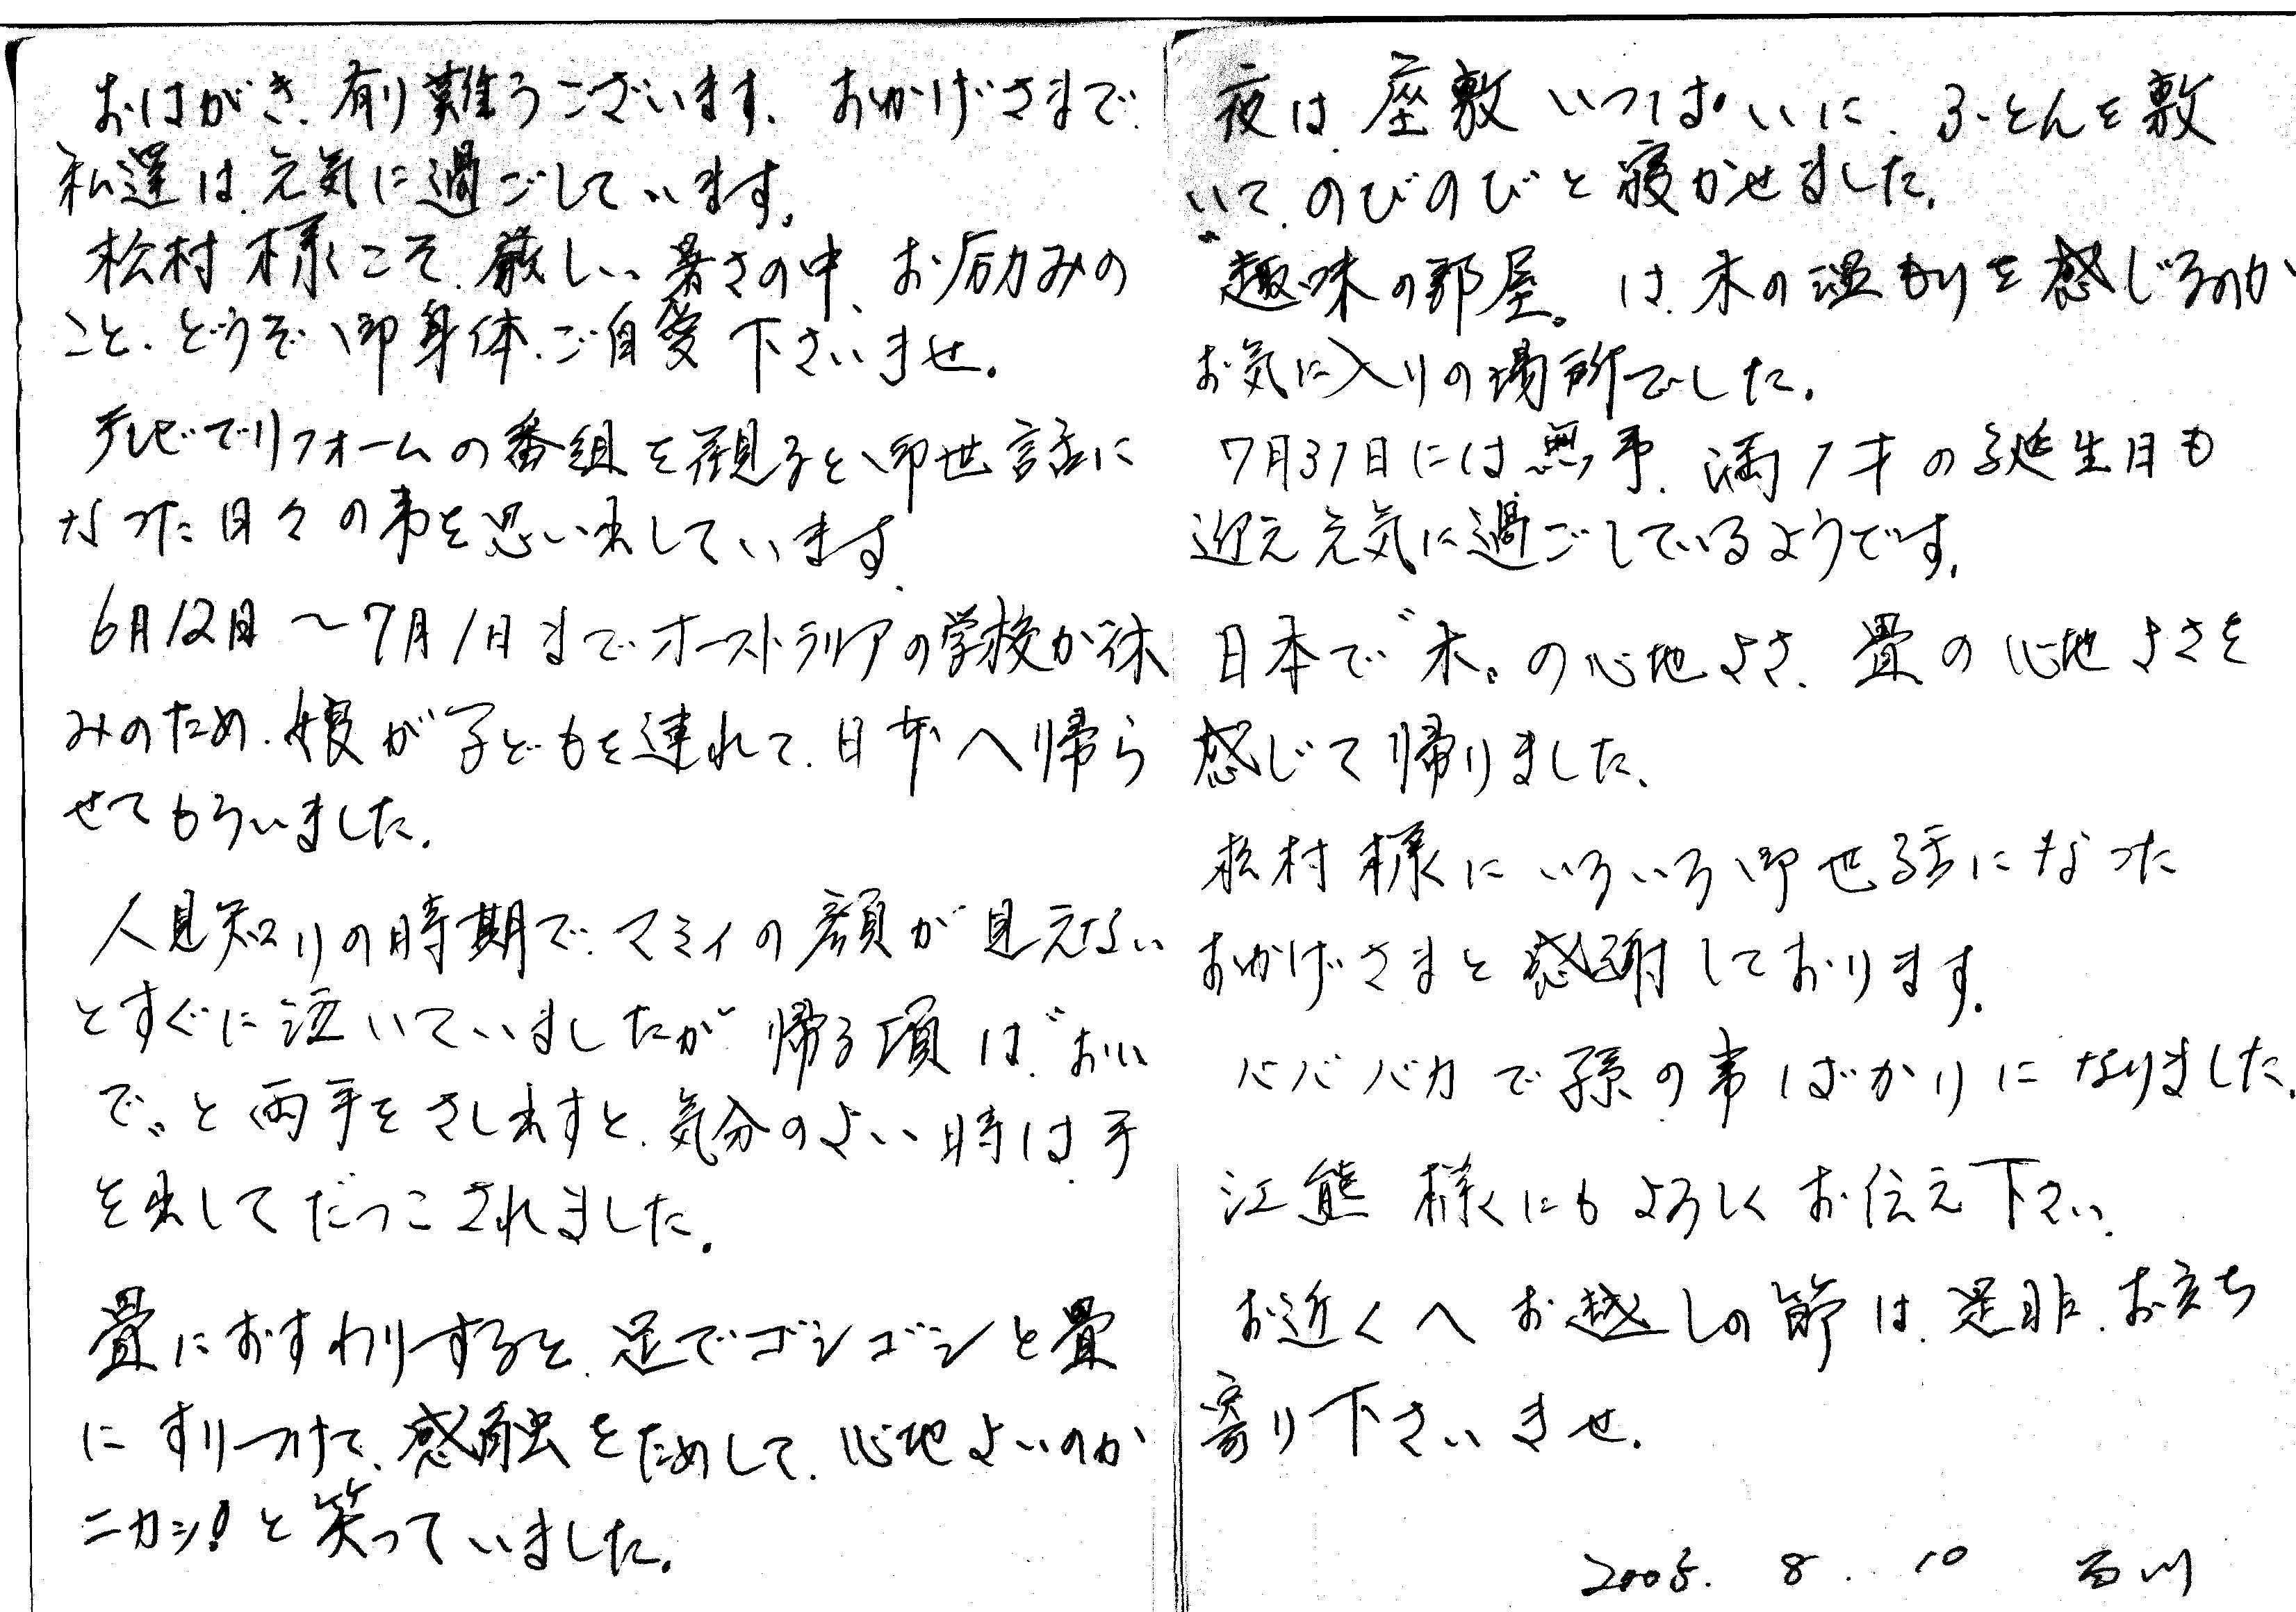 おはがき、有り難うございます。おかげさまで、
私達は、元気に過ごしています。
松村様こそ、厳しい暑さの中、お励みの
こと、どうぞ御身体、ご自愛下さいませ。
テレビでリフォームの番組を観ると、御世話に
なった日々の事を思い出しています。
6月12日〜7月1日までオーストラリアの学校が休
みのため、娘が子どもを連れて、日本へ帰ら
せてもらいました。
人見知りの時期で、マミィの顔が見えない
とすぐに泣いていましたが帰る頃は、"おい
で"と両手をさし出すと、気分のよい時は、手
を出してだっこされました。
畳におすわりすると、足でゴシゴシと畳
にすりつけて、感触をためして、心地よいのか
ニカッ!と笑っていました。
夜は、座敷いっぱいに、ふとんを敷
いて、のびのびと寝かせました。
"趣味の部屋"は、木の温もりを感じるのか
お気に入りの場所でした。
7月31日には無事、満1才の誕生日も
迎え元気に過ごしているようです。
日本で"木"の心地よさ、畳の心地よさを
感じて帰りました。
松村様にいろいろ御世話になった
おかげさまと感謝しております。
バババカで孫の事ばかりになりました。
江熊様にもよろしくお伝え下さい。
お近くへお越しの節は、是非、お立ち
寄り下さいませ。
8.10